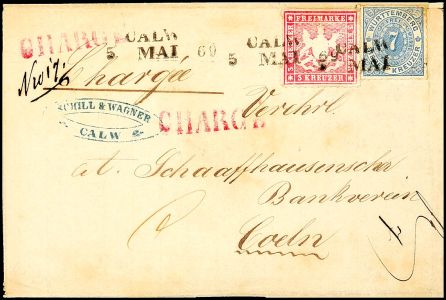 CHARGÉ
CALW
5 MAI 69
CALW
5 MAI 69
CALW
5 MAI
FREIMARKE
5 KREUZER
WÜRTTEMBERG
7
KREUZER
Nro 17.
Chargée
SCHILL & WAGNER
CALW
CHARGÉ
Verehrl.
A. Schaaffhausenscher
Bankverein
Coeln